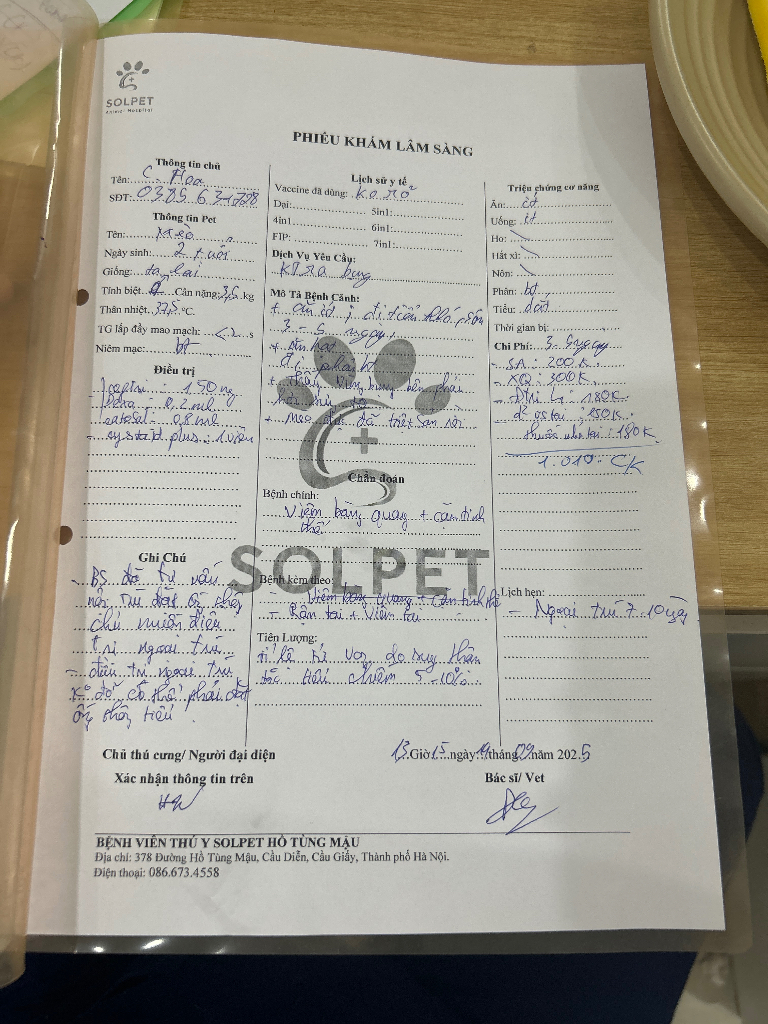 SOLPET
Animal Hospital
PHIẾU KHÁM LÂM SÀNG
Thông tin chủ
Tên: C. Hoa
SĐT: 0385 63 1728
Thông tin Pet
Tên: Mèo
Ngày sinh: 2 tuổi
Giống: ta lai
Tính biệt Cân nặng: 3,6 kg
Thân nhiệt: 37,5 °C
TG lấp đầy mao mạch: <2 s
Niêm mạc: bt
Điều trị
: 150 mg
- : 0,2 ml
- catosal: 0,8 ml
- cystaid plus: 1 viên
Ghi Chú
- BS đã tư vấn
chủ muốn điều
trị ngoại trú
- điều trị ngoại trú
ko đỡ có thể phải đặt
ống thông tiểu
Lịch sử y tế
Vaccine đã dùng: Ko rõ
Dại: 5in1:
4in1 6in1:
FIP: 7in1:
Dịch Vụ Yêu Cầu:
Ktra bụng
Mô Tả Bệnh Cảnh:
+ ăn ít, đi tiểu khó, 
3 - 5 ngày
+ ăn hạt
đi phải bt
+ thấy bụng bên phải
+ Mèo đã triệt sản rồi
SOLPET
Chẩn đoán
Bệnh chính:
Viêm bàng quang + căn tính
thể
Bệnh kèm theo:
- Viêm bàng quang + căn tính thể
- Rận tai + Viêm tai
Tiên Lượng:
tỉ lệ tử vong do suy thận
tắc tiểu chiếm 5-10%
Triệu chứng cơ năng
Ăn: ít
Uống: ít
Ho:
Hắt xì:
Nôn:
Phân: bt
Tiểu: dắt
Thời gian bị:
Chi Phí: 3 - 5 ngày
- SA: 200K
- XQ: 300K
- Đtrị : 180K
tai: 150K
thuốc nhỏ tai: 180K
1.010 CK
Lịch hẹn:
- Ngoại trú 7-10 ngày
Chủ thú cưng/ Người đại diện
Xác nhận thông tin trên
13 Giờ 15 ngày 14 tháng 09 năm 2025
Bác sĩ/ Vet
BỆNH VIỆN THÚ Y SOLPET HỒ TÙNG MẬU
Địa chỉ: 378 Đường Hồ Tùng Mậu, Cầu Diễn, Cầu Giấy, Thành phố Hà Nội.
Điện thoại: 086.673.4558